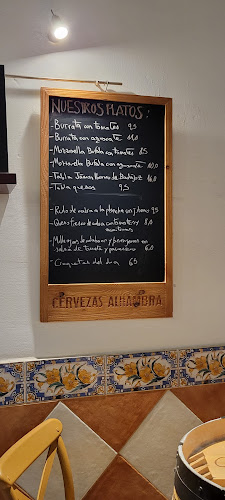 NUESTROS PLATOS:
- Burrata con tomates 9,5
- Burrata con aguacate 11,0
- Mozzarella Bufala con tomates 8,5
- Mozzarella Bufala con aguacate 10,0
- Tabla Jamon Iberico de Badajoz 16,0
- Tabla quesos 9,5
- Rulo de cabra a la plancha con
- Queso fresco de cabra con tomates y 8,0
- Milhojas de calabacin y parmesano con
salsa de tomate y 6,0
- Croquetas del dia 6,5
CERVEZAS ALHAMBRA